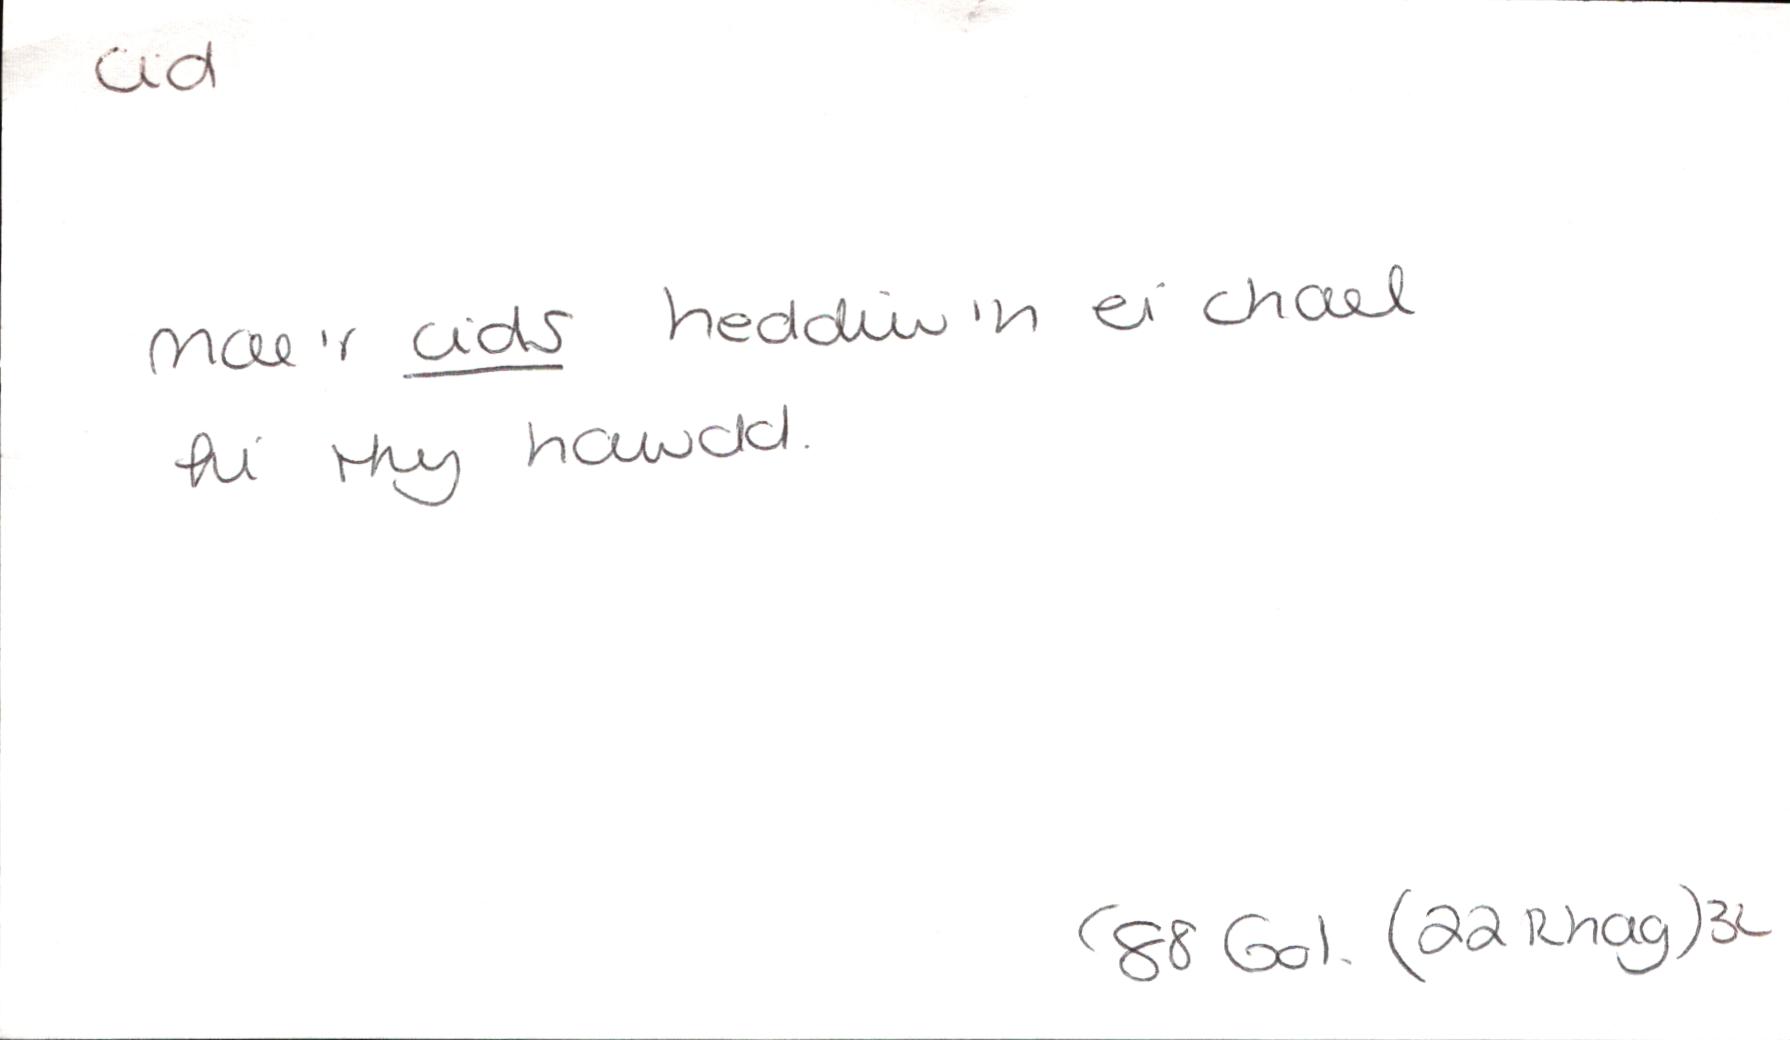 cid
Mae'r cids heddiw'n ei chael
hi rhy hawdd.
'88 Gol. (22 Rhag) 32